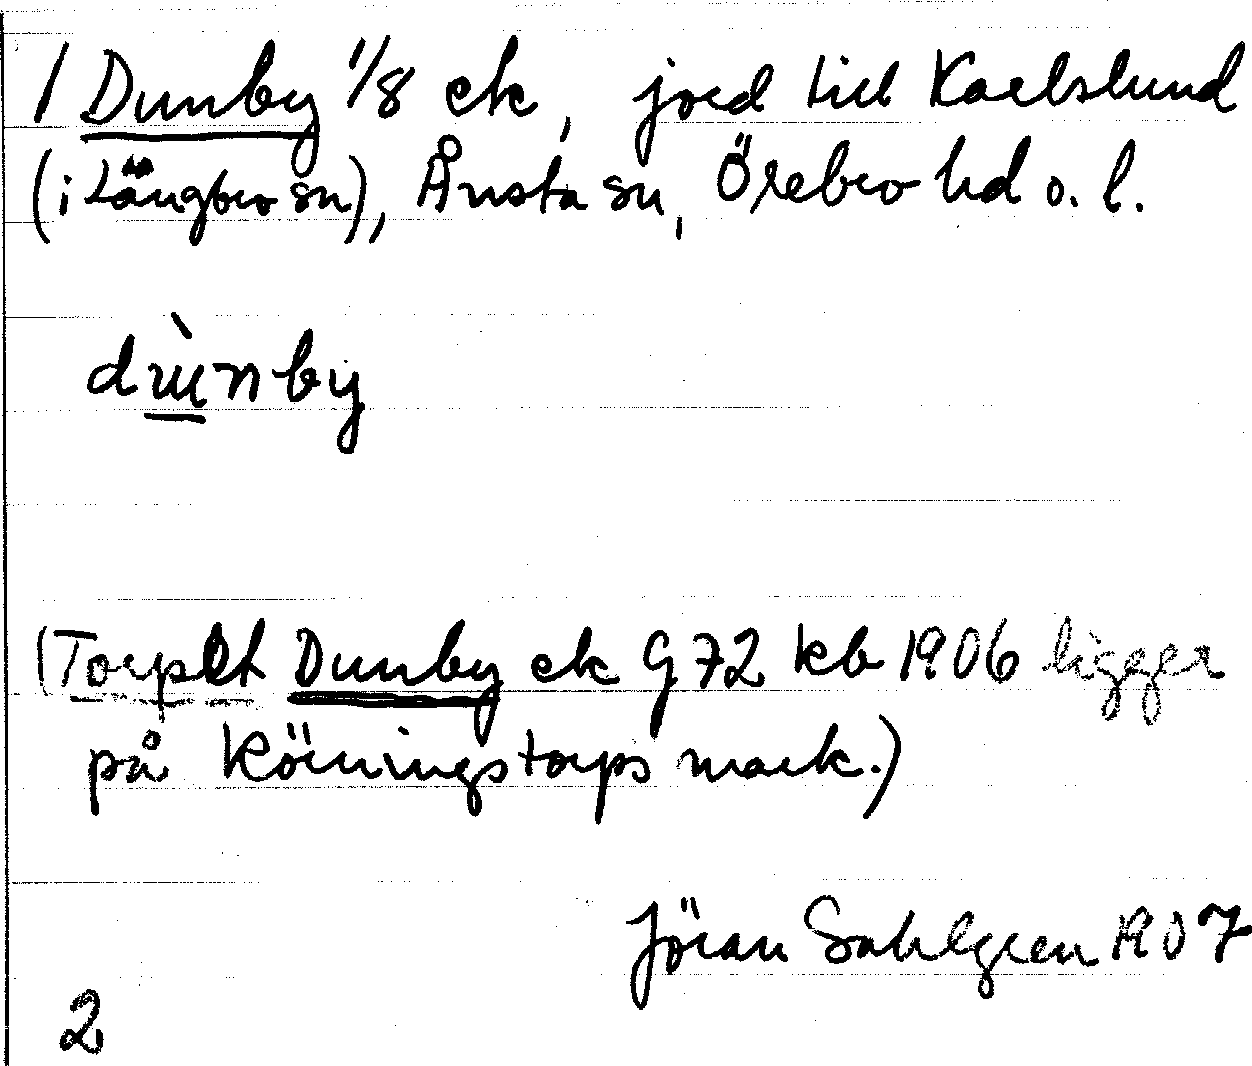 / Dunby 1/8 ek, jord till Karlslund
(i Längbro sn), Ånsta sn, Örebro hd o. l.
dùnby
(Torpet Dunby ek G 72 kb 1906 ligger
på Körningstorps mark.)
Jöran Sahlgren 1907
2